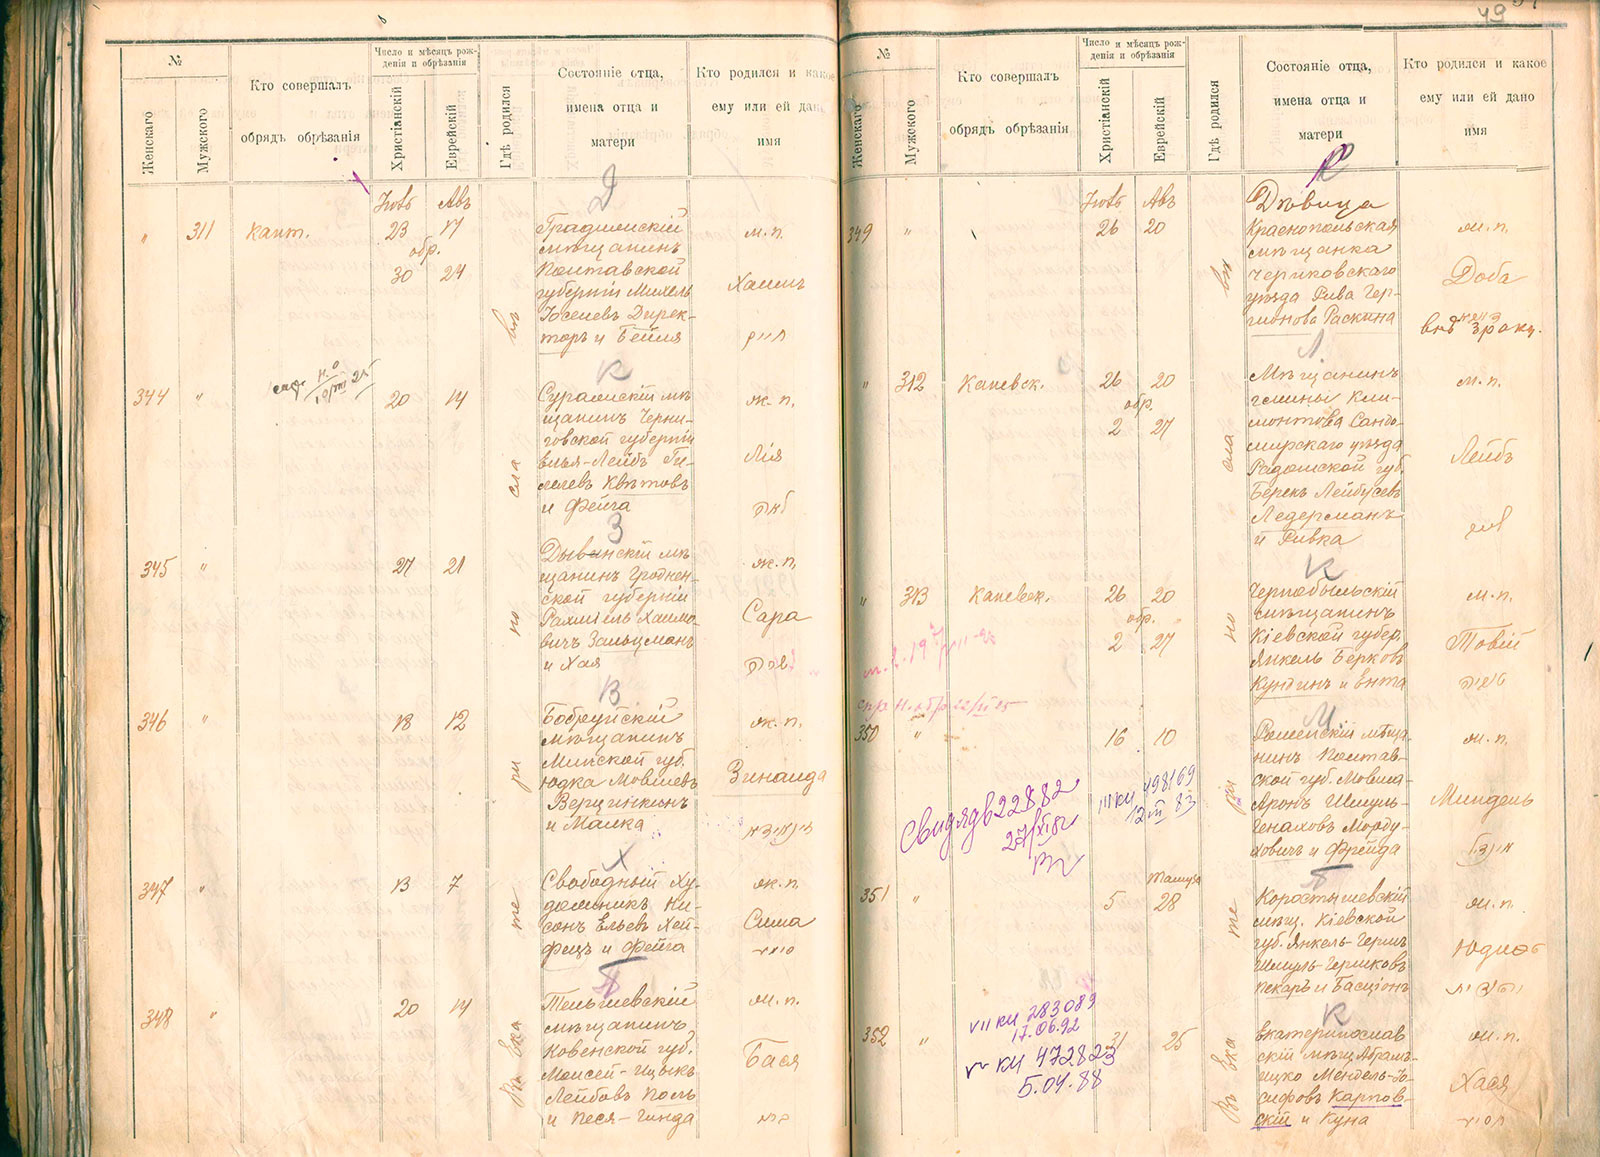 49
№
Женскаго
Мужского
Кто совершалъ
обрядъ обрѣзанія
Число и мѣсяцъ рож-
денія и обрѣзанія
Христіанскій
Еврейскій
Гдѣ родился
Состояніе отца,
имена отца и
матери
Кто родился и какое
ему или ей дано
имя
Въ Екатеринославѣ
Д
„ 311 Кант.
Іюль Авъ
23 17
обр.
30 24
Градижскій
мѣщанинъ
Полтавской
губерніи Михель
Іоселевъ Дирек-
торъ и Бейля
м. п.
Хаимъ
חיים
К
344 „
20 14
Суражскій мѣ
щанинъ Черни-
говской губерніи
Елья-Лейбъ Ги-
лелевъ Квѣтовъ
и Фейга
ж. п.
Лія
לאה
З
345 „
27 21
Дывинскій мѣ
щанинъ Гроднен-
ской губерніи
Рахміель Хаимо-
вичъ Зальцманъ
и Хая
ж. п.
Сара
שרה
В
346 „
18 12
Бобруйскій
мѣщанинъ
Минской губ.
Юдка Мовшевъ
Верцинкинъ
и Малка
ж. п.
Зинаида
זינאידא
Х
347 „
13 7
Свободный Ху-
дожникъ Ни-
сонъ Ельевъ Хей-
фецъ и Фейга
ж. п.
Сима
סימא
П
348 „
20 14
Тельшевскій
мѣщанинъ
Ковенской губ.
Моисей-Ицыкъ
Лейбовъ Поль
и Песя-Гинда
ж. п.
Бася
№
Женскаго
Мужского
Кто совершалъ
обрядъ обрѣзанія
Число и мѣсяцъ рож-
денія и обрѣзанія
Христіанскій
Еврейскій
Гдѣ родился
Состояніе отца,
имена отца и
матери
Кто родился и какое
ему или ей дано
имя
Въ Екатеринославѣ
Р
349 „
Іюль Авъ
26 20
Дѣвица
Краснопольская
мѣщанка
Чериковскаго
уѣзда Рива Гер-
шонова Раскина
ж. п.
Доба
внѣ брака.
Л
„ 312 Каневск.
26 20
обр.
2 27
Мѣщанинъ
гмины Кли-
монтовъ Сандо-
мирскаго уѣзда
Радомской губ.
Берекъ Лейбусевъ
Ледерманъ
и Ривка
м. п.
Лейбъ
ליב
К
„ 313 Каневск.
26 20
обр.
2 27
Чернобыльскій
мѣщанинъ
Кіевской губер.
Янкель Берковъ
Кундинъ и Ента
м. п.
Товій
טוביה
М
350 „
16 10
Роменскій мѣща-
нинъ Полтав-
ской губ. Мовша-
Аронъ Шмуль-
Генаховъ Морду-
ховичъ и Фрейда
ж. п.
Миндель
מינדל
Свид дв 22882
27/XI 82
III КИ 498169
12 III 83
П
351 „
Тамуза
5 28
Коростышевскій
мѣщ. Кіевской
губ. Янкель-Гершъ
Шмуль-Гершковъ
Пекарь и Басціонъ
ж. п.
Юдиѳь
יהודית
К
352 „
31 25
VII КИ 283089
17.06.92
V КИ 472823
5.04.88
Екатеринослав
скій мѣщ. Абрамъ-
Ицко Мендель-Іо-
сифовъ Карпов-
скій и Куна
ж. п.
Хася
חסיה